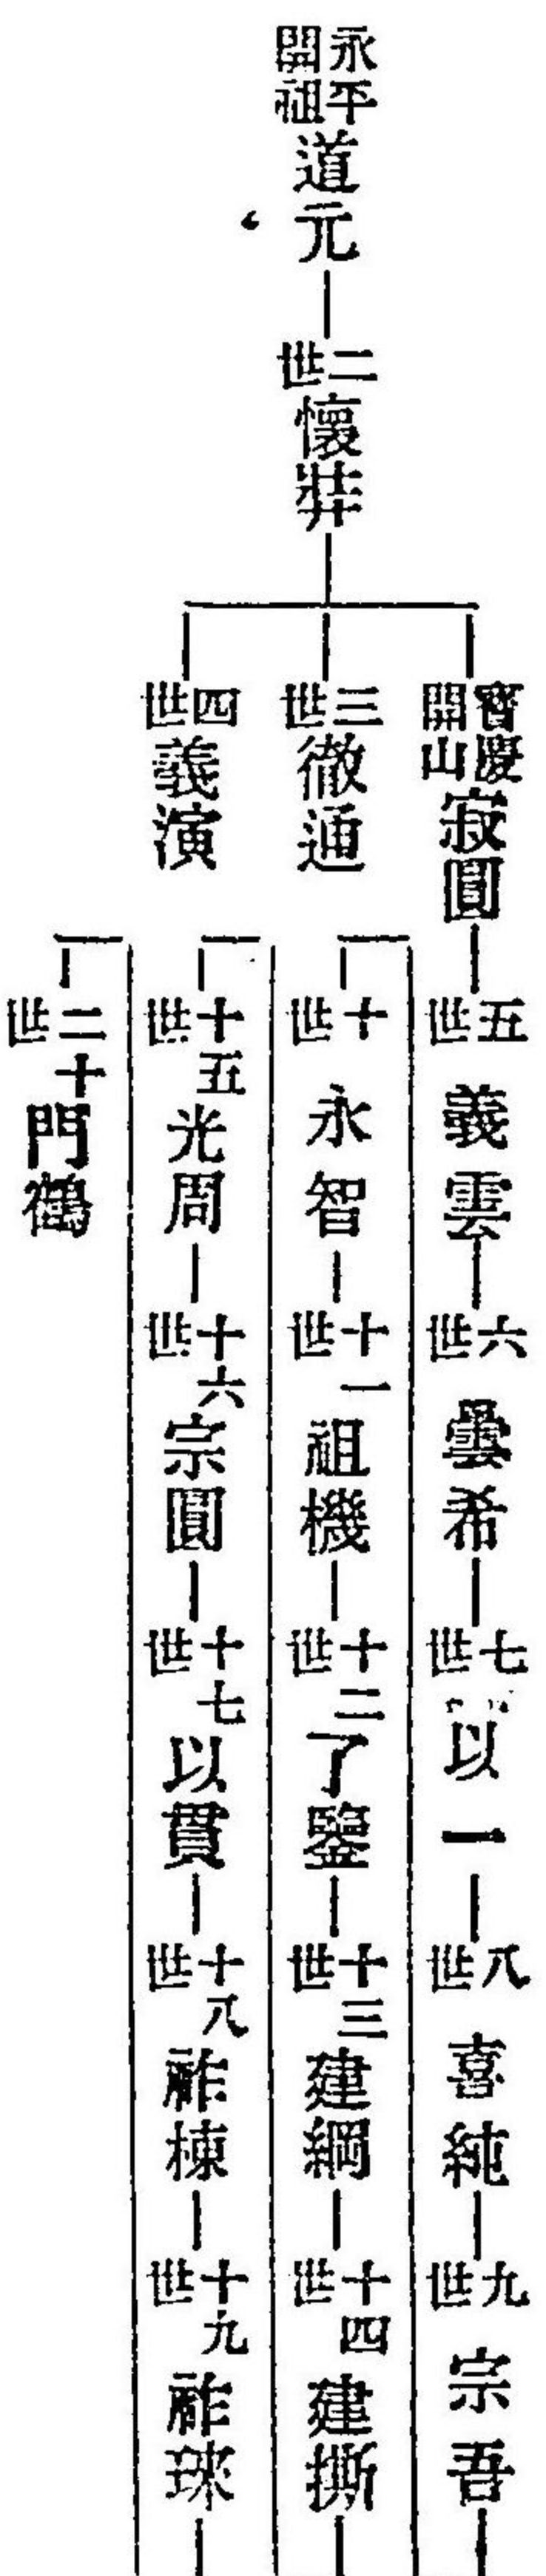 永平開祖道元
二世懷弉
寶慶開山寂圓
三世徹通
四世義演
五世義雲
六世曇希
七世以一
八世喜純
九世宗吾
十世永智
十一世祖機
十二世了鑒
十三世建綱
十四世建撕
十五世光周
十六世宗圓
十七世以貫
十八世祚棟
十九世祚球
二十世門鶴